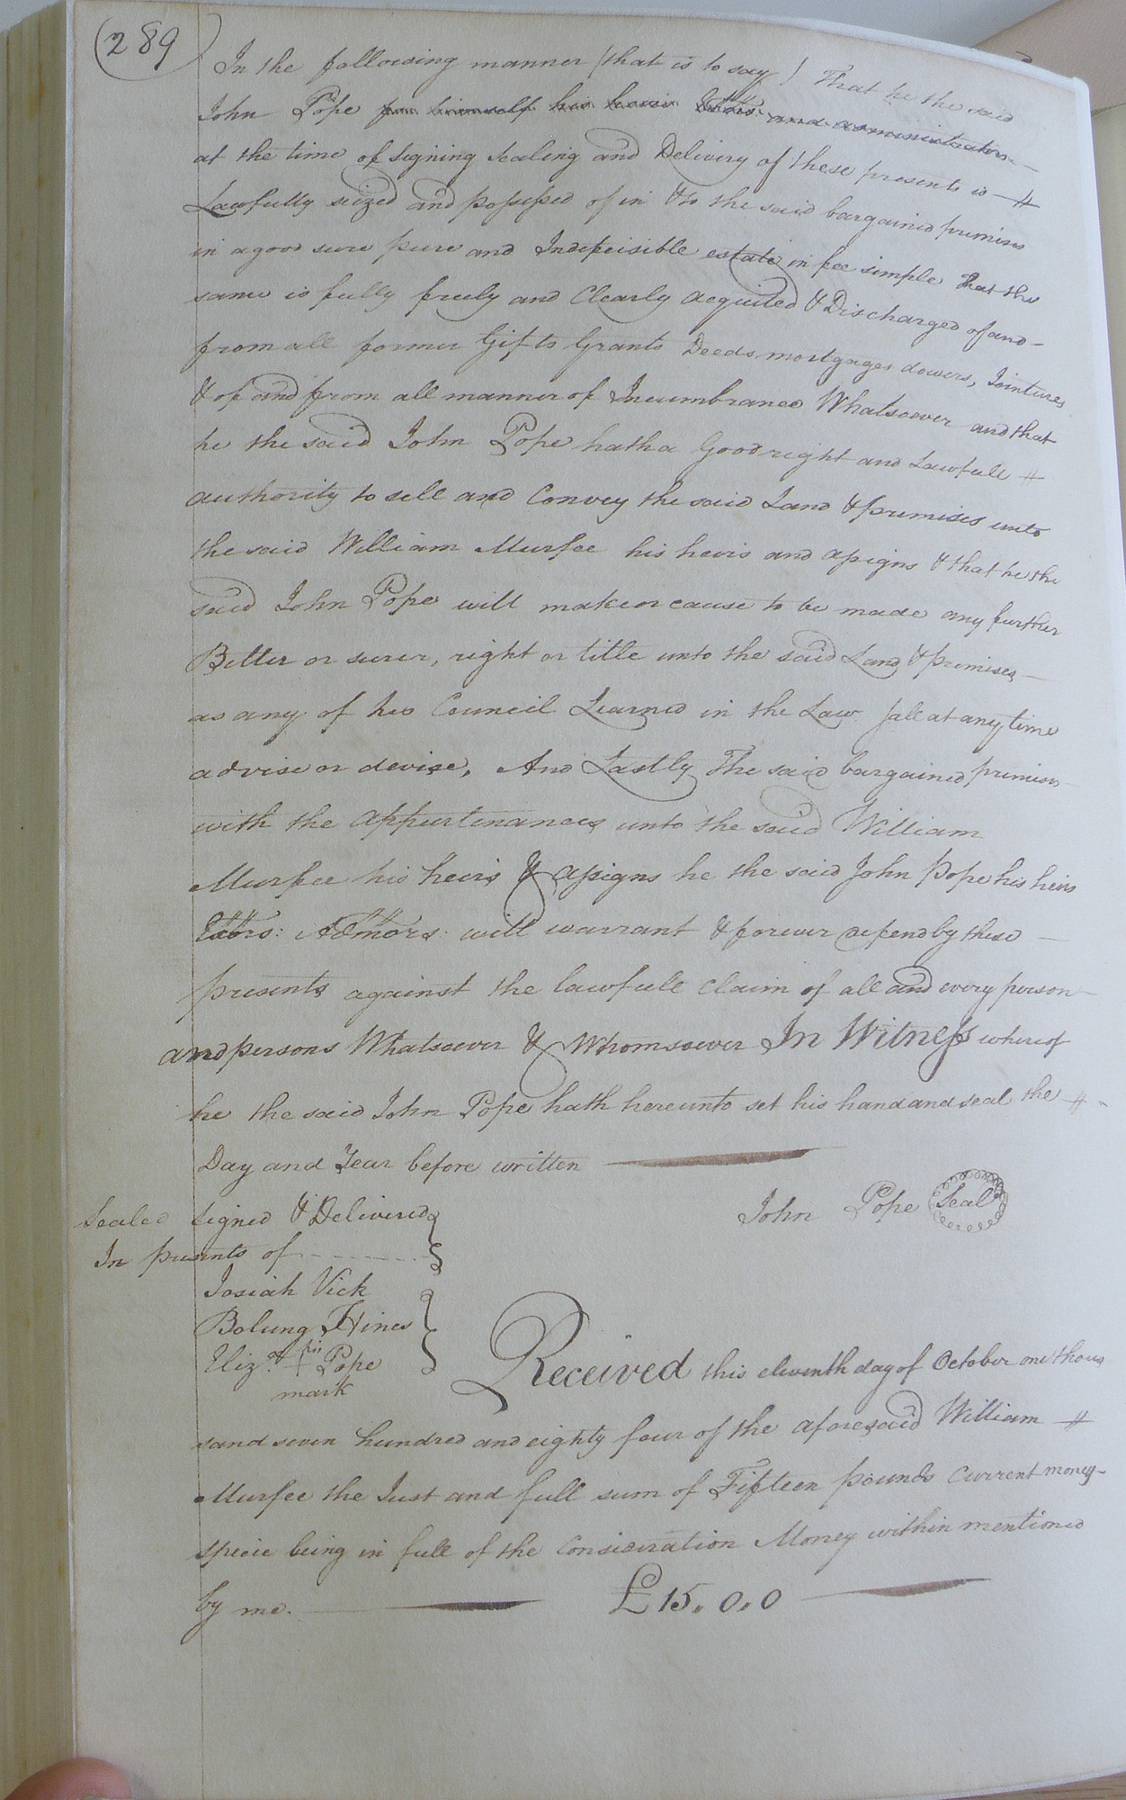 (289)
In the following manner (that is to say) That he the said
John Pope for himself his heirs Extors and administrators
at the time of signing sealing and Delivery of these presents is #
Lawfully seized and possessed of in & to the said bargained premises
in a good sure pure and Indefeisible estate in fee simple that the
same is fully freely and Clearly acquited & Discharged of and
from all former Gifts Grants Deeds mortgages dowers, Jointures
& of and from all manner of Incumbrance Whatsoever and that
he the said John Pope hath a Good right and Lawfull #
authority to sell and Convey the said Land & premises unto
the said William Murfee his heirs and assigns & that he the
said John Pope will make or cause to be made any further
Better or surer, right or title unto the said Land & premises
as any of his Council Learned in the Law sall at any time
advise or devise, And Lastly The said bargained premises
with the appurtenances unto the said William
Murfee his heirs & assigns he the said John Pope his heirs
Extors: Admors: will warrant & forever defend by these
presents against the lawfull Claim of all and every person
and persons Whatsoever & Whomsoever In Witness whereof
he the said John Pope hath hereunto set his hand and seal the #
Day and Year before written
John Pope Seal
Sealed signed & Delivered
In presents of
Josiah Vick
Bolung Hines
Eliza + his Pope
mark
Received this eleventh day of October one thou
sand seven hundred and eighty four of the aforesaid William #
Murfee the Just and full sum of Fifteen pounds Current money
specie being in full of the Consideration Money within mentioned
by me. £15.0.0